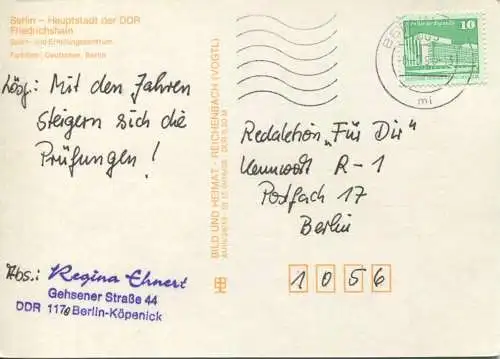 Berlin – Hauptstadt der DDR
Friedrichshain
Sport- und Erholungszentrum
Farbfoto: Deutscher, Berlin
Lösg.: Mit den Jahren
steigern sich die
Prüfungen!
Abs.: Regina Ehnert
Gehsener Straße 44
DDR 1170 Berlin-Köpenick
BILD UND HEIMAT · REICHENBACH (VOGTL)
10
mi
Redaktion „Für Dir“
Kennwort R-1
Postfach 17
Berlin
1056